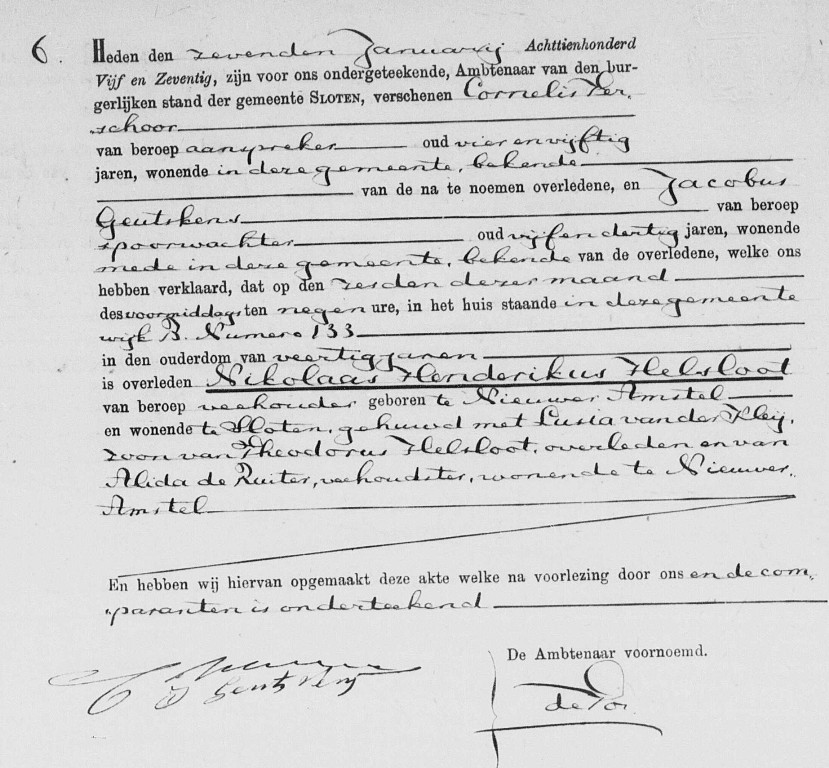 6. Heden den zevenden Januarij Achttienhonderd
Vijf en Zeventig, zijn voor ons ondergeteekende, Ambtenaar van den bur-
gerlijken stand der gemeente SLOTEN, verschenen Cornelis Ver-
schoor
van beroep aanspreker oud vier en vijftig
jaren, wonende in deze gemeente, bekende
van de na te noemen overledene, en Jacobus
Geutskens van beroep
spoorwachter oud vijf en dertig jaren, wonende
mede in deze gemeente, bekende van de overledene, welke ons
hebben verklaard, dat op den zesden dezer maand
des voormiddags ten negen ure, in het huis staande in deze gemeente
wijk B. Numero 133
in den ouderdom van veertig jaren
is overleden Nikolaas Henderikus Helsloot
van beroep veehouder geboren te Nieuwer Amstel
en wonende te Sloten, gehuwd met Lusia van der Kleij,
zoon van Theodorus Helsloot, overleden en van
Alida de Ruiter, veehoudster, wonende te Nieuwer
Amstel
En hebben wij hiervan opgemaakt deze akte welke na voorlezing door ons en de com-
paranten is onderteekend
De Ambtenaar voornoemd.
J Geutskens